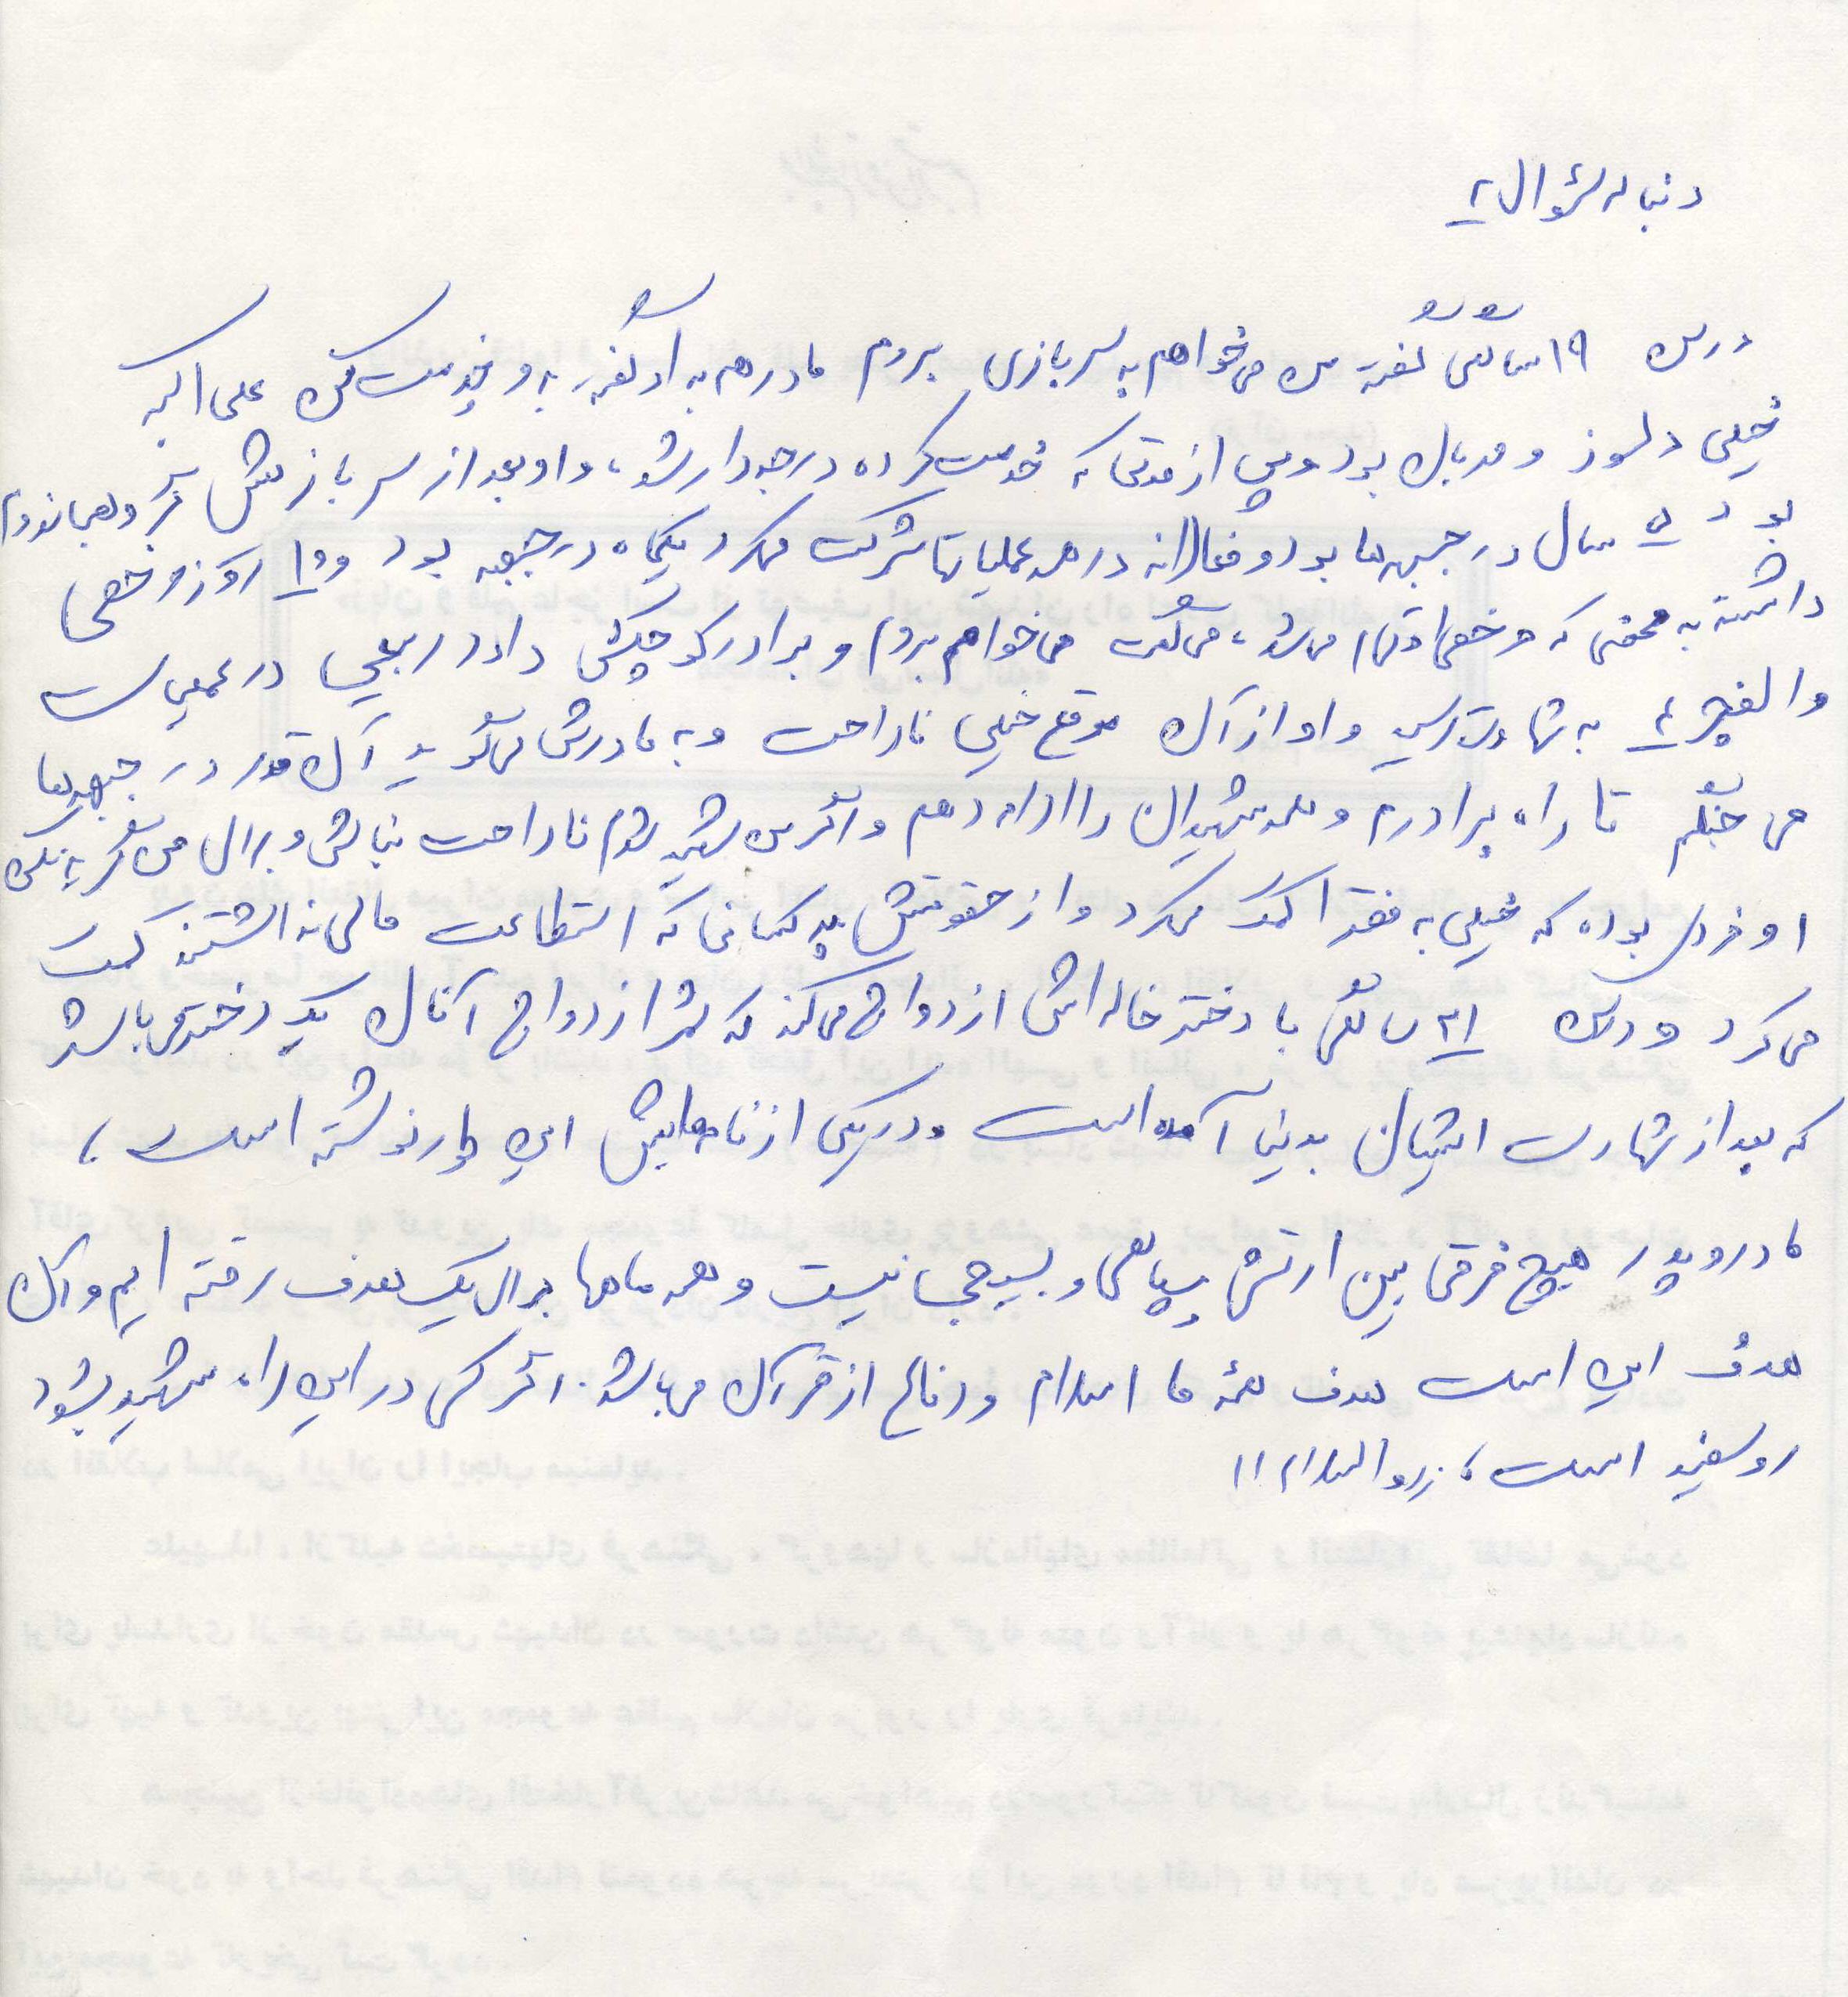 دنباله سؤال ۲
درسن ۱۹ سالگی گفته من میخواهم به سربازی بروم مادرم به او گفته برو خدمت کن علی اکبر
خیلی دلسوز و مهربان بود و پس از مدتی که خدمت کرده درجه دار شد، و او بعد از سربازیش
بود ۵ سال در جبهه‌ها بود و فعالانه در همه عملیاتها شرکت میکرد یکماه در جبهه بود و ۱۰ روز مرخصی
داشته به محضی که مرخصی تمام می‌شد، می‌گفت می‌خواهم بروم و برادر کوچکش داود ربیعی در عملیات
والفجر ۴ به شهادت رسید و او از آن موقع خیلی ناراحت و به مادرش می‌گوید آن قدر در جبهه‌ها
می جنگم تا راه برادرم و همه شهیدان را ادامه دهم و اگر من شهید شدم ناراحت نباش و برای من گریه نکن
او فردی بوده که خیلی به فقرا کمک میکرد و از حقوقش به کسانی که استطاعت مالی نداشتند کمک
می‌کرد و درسن ۲۱ سالگی با دختر خاله‌اش ازدواج می‌کند که ثمر ازدواج آنان یک دختر می‌باشد
که بعد از شهادت ایشان بدنیا آمده است و در یکی از نامه‌هایش این طور نوشته است،
مادر و پدر هیچ فرقی بین ارتش سپاهی و بسیجی نیست و همه ماها برای یک هدف رفته ایم و آن
هدف این است هدف همهٔ ما اسلام و دفاع از قرآن می‌باشد. اگر کسی در این راه شهید بشود
روسفید است، والسلام //